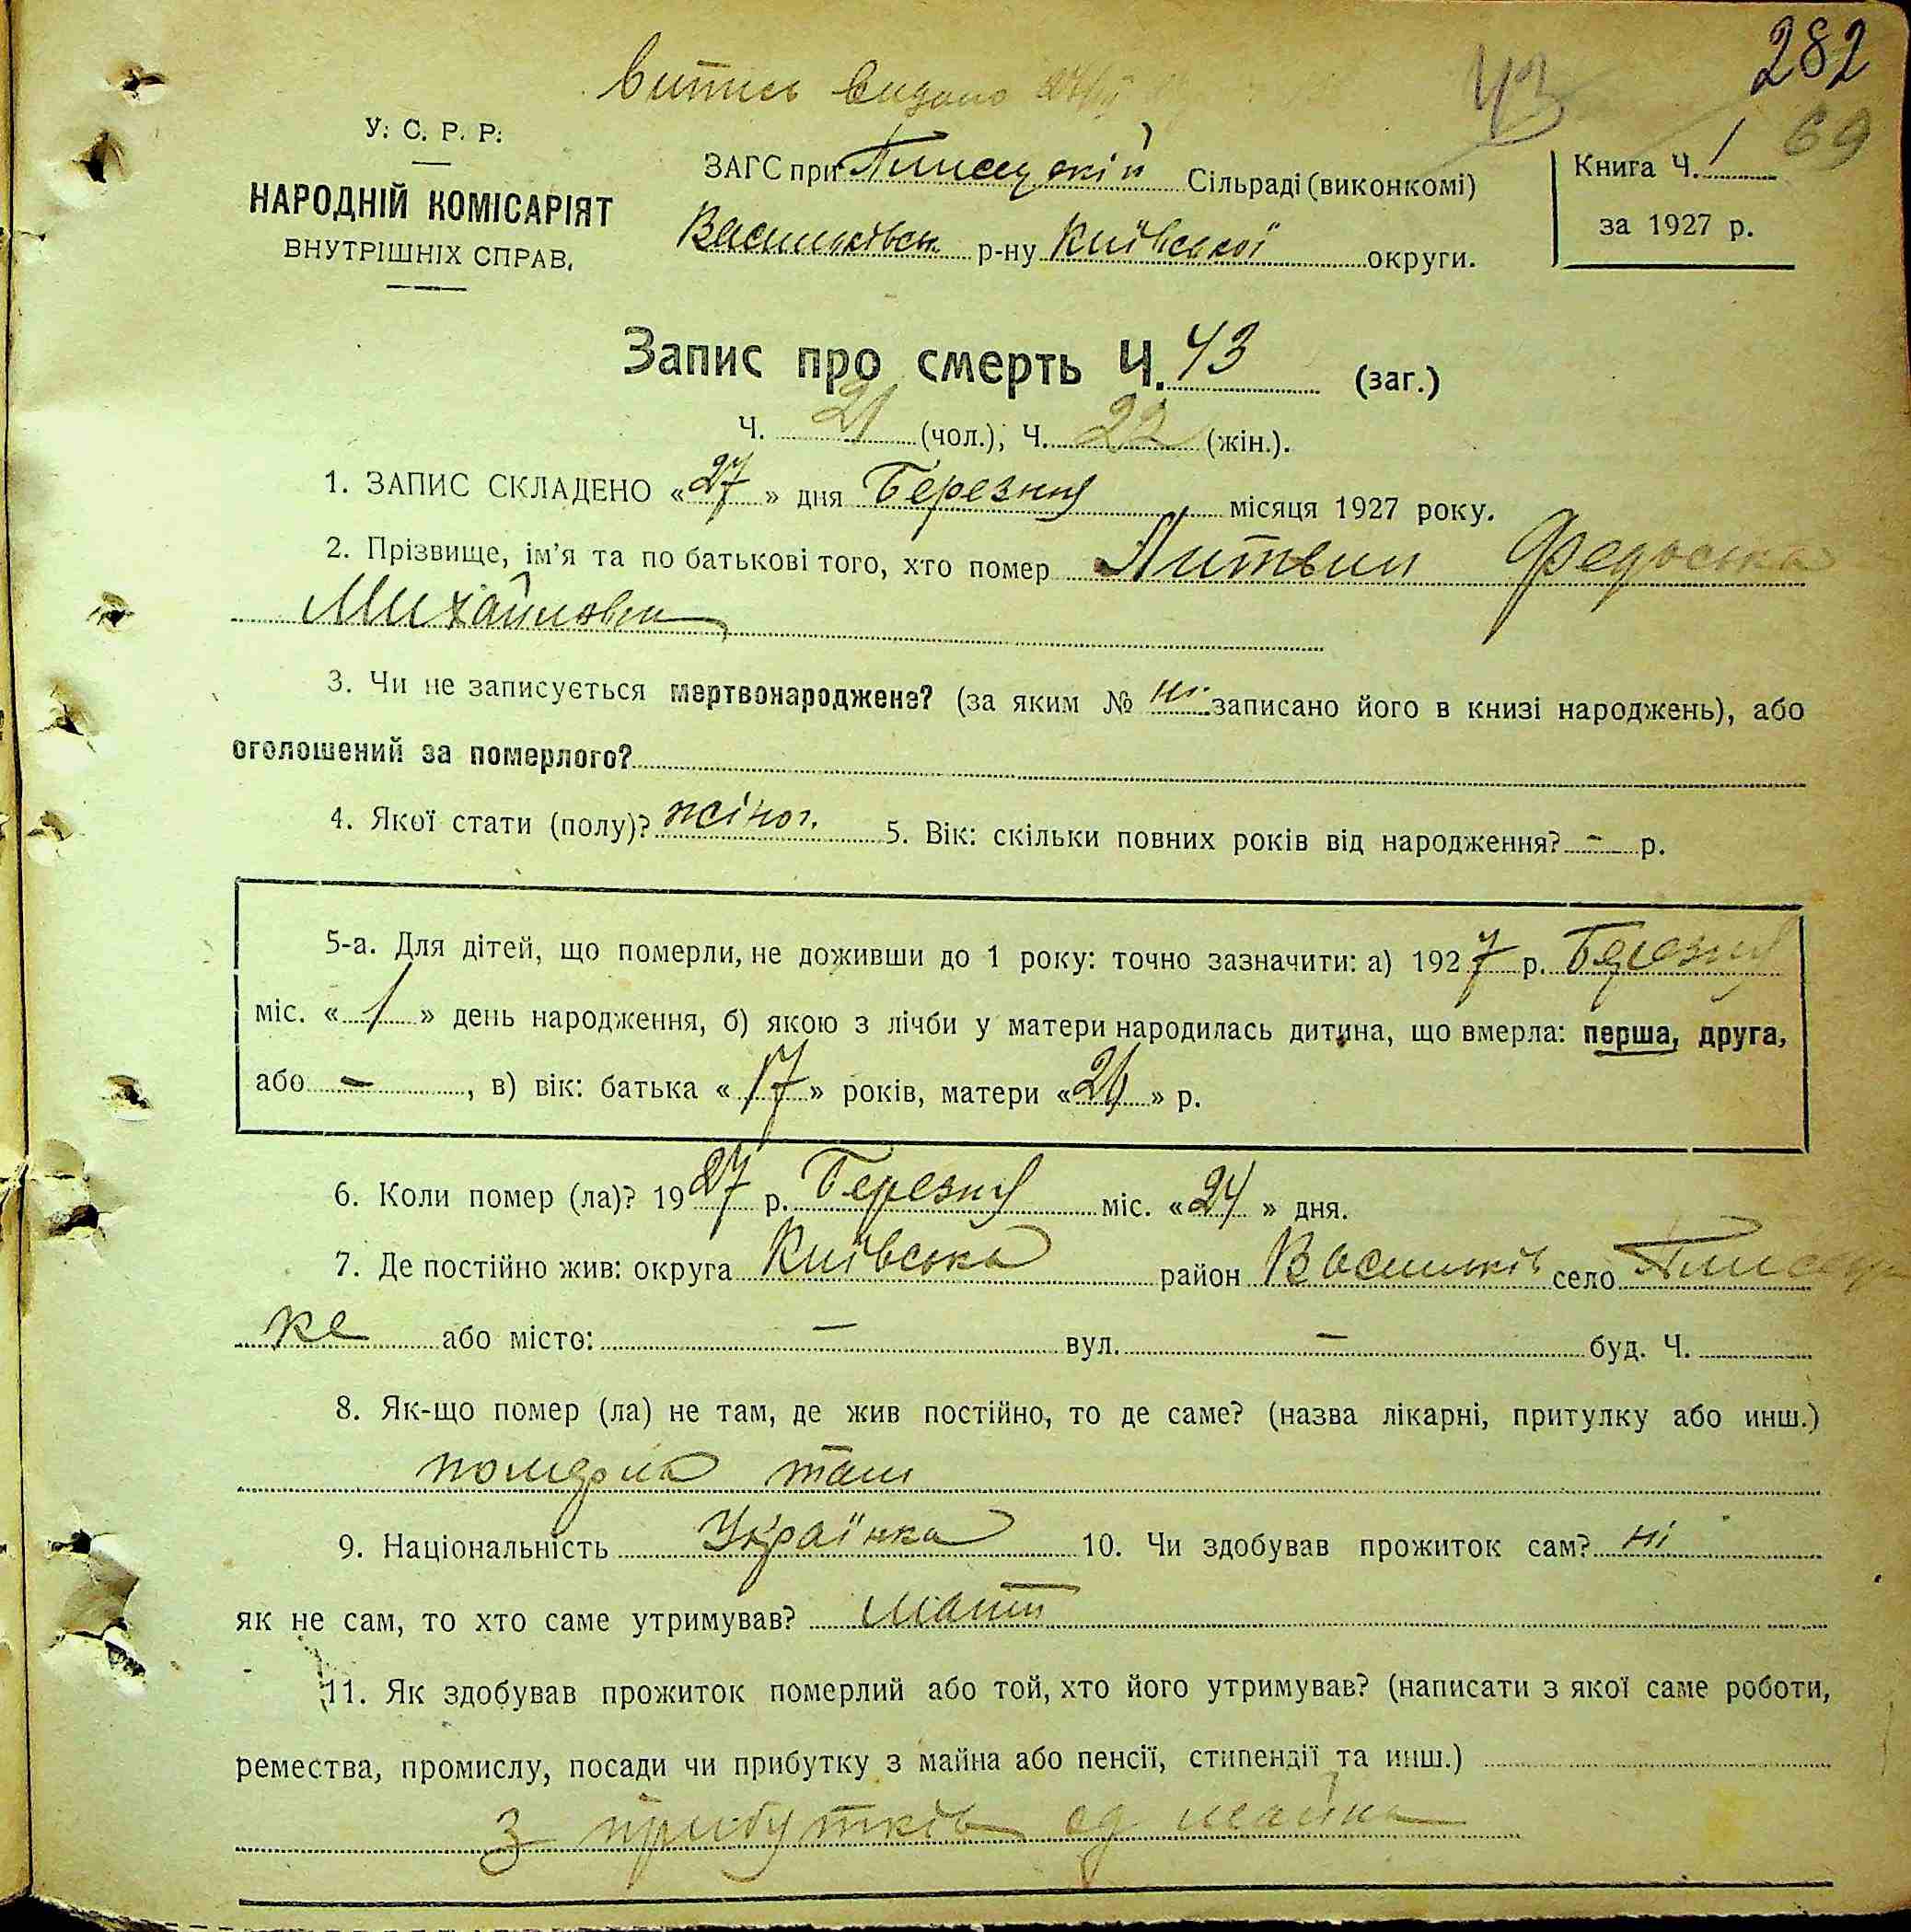 282
Витпсь видано
43
69
У. С. Р. Р.
НАРОДНІЙ КОМІСАРІЯТ
ВНУТРІШНІХ СПРАВ.
ЗАГС при Плисецькій Сільраді (виконкомі)
Васильківськ р-ну Київської округи.
Книга Ч. 1
за 1927 р.
Запис про смерть Ч. 43 (заг.)
Ч. 21 (чол.), Ч. 22 (жін.).
1. ЗАПИС СКЛАДЕНО «27» дня Березня місяця 1927 року.
2. Прізвище, ім'я та по батькові того, хто помер Литвин Федоська
Михайловна
3. Чи не записується мертвонароджене? (за яким № ні записано його в книзі народжень), або
оголошений за померлого?
4. Якої стати (полу)? жіноч. 5. Вік: скільки повних років від народження? - р.
5-а. Для дітей, що померли, не доживши до 1 року: точно зазначити: а) 1927 р. Березня
міс. «1» день народження, б) якою з лічби у матери народилась дитина, що вмерла: перша, друга,
або - , в) вік: батька «17» років, матери «21» р.
6. Коли помер (ла)? 1927 р. Березня міс. «24» дня.
7. Де постійно жив: округа Київська район Васильків село Плисець
ке або місто: - вул. - буд. Ч.
8. Як-що помер (ла) не там, де жив постійно, то де саме? (назва лікарні, притулку або инш.)
померла там
9. Національність Українка 10. Чи здобував прожиток сам? ні
як не сам, то хто саме утримував? мати
11. Як здобував прожиток померлий або той, хто його утримував? (написати з якої саме роботи,
ремества, промислу, посади чи прибутку з майна або пенсії, стипендії та инш.)
з прибутків од майна